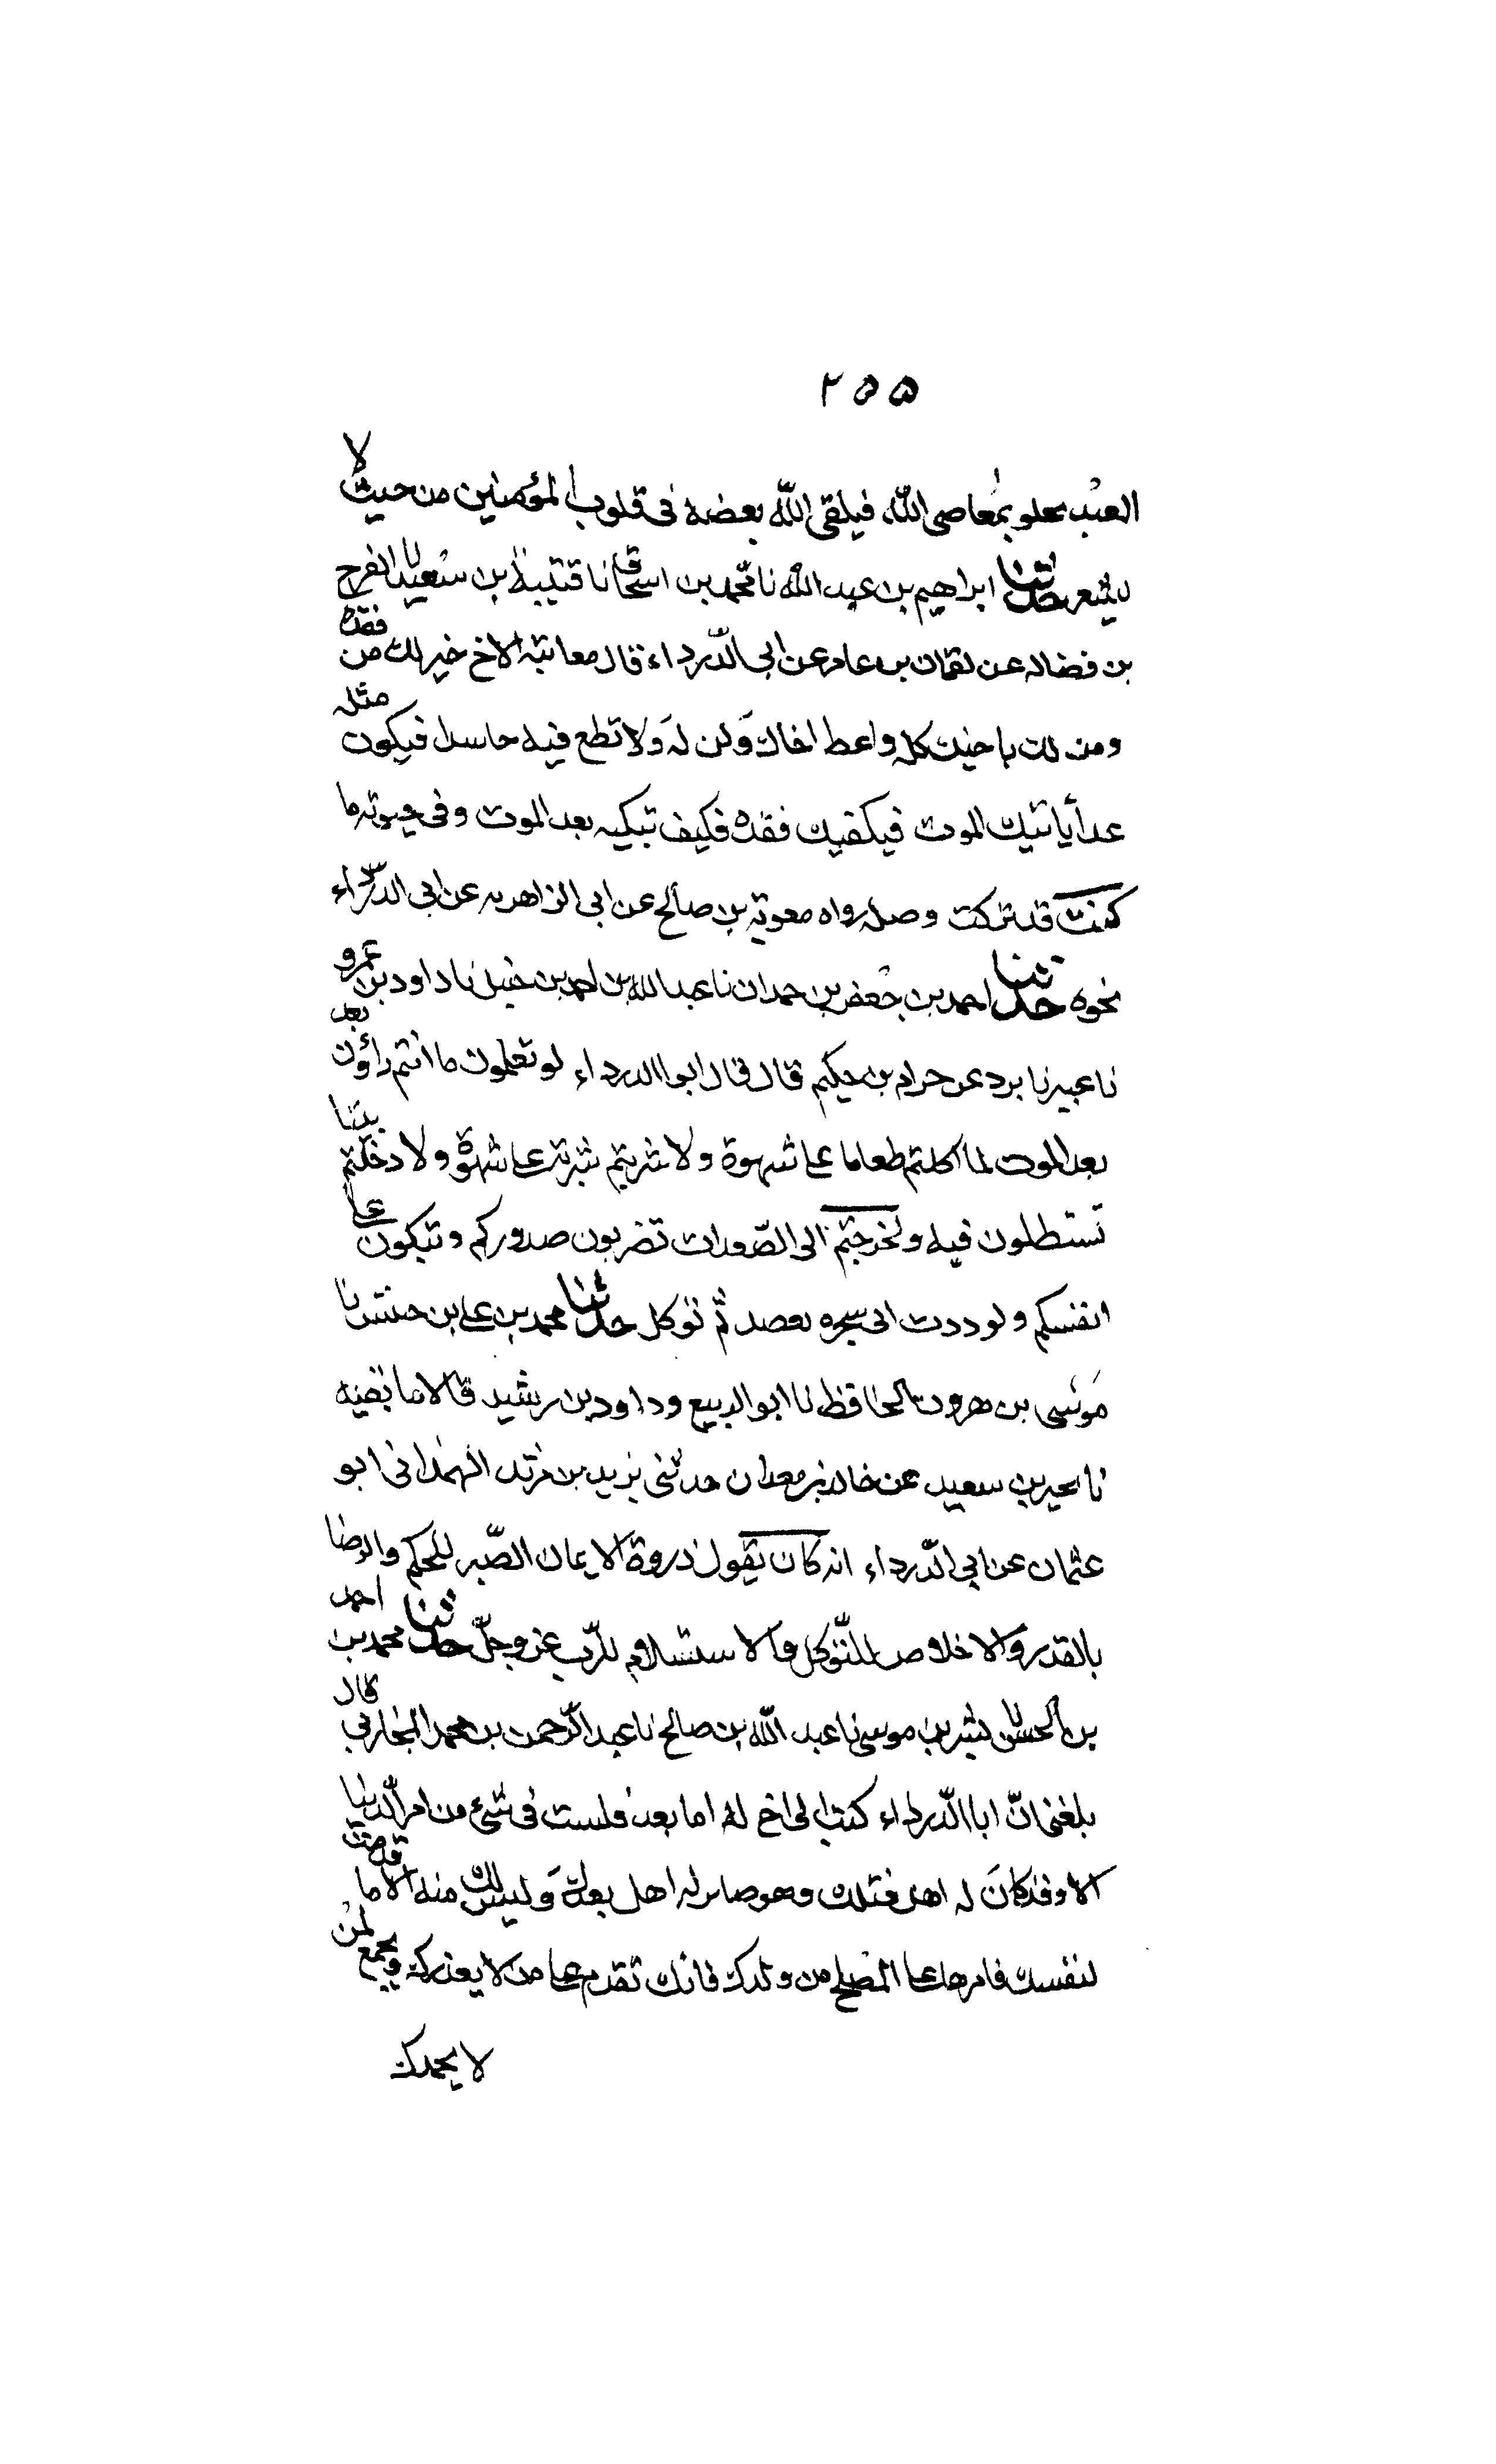 ٢٥٥
العبد يخلو بمعاصى الله فيلقى الله بغضه فى قلوب المؤمنين من حيث لا
يشعر حدثنا ابراهيم بن عبد الله نا محمد بن اسحاق نا قتيبة بن سعيد نا الفرج
بن فضاله عن لقمان بن عامر عن ابى الدّرداء قال معاتبة الاخ خير لك من فقده
ومن لك باخيك كله واعط اخاك ولن له ولا تطع فيه حاسدا فيكون مثله
غدا ياتيك الموت فيكفيك فقده فكيف تبكيه بعد الموت وفى حيوته ما
كنت قد تركت وصله رواه معوية بن صالح عن ابى الزاهريه عن ابى الدّرداء
نحوه حدثنا احمد بن جعفر بن حمدان نا عبد الله بن احمد بن حنبل نا داود بن عمرو
نا عبير نا برد عن حرام بن حكيم قال قال ابوا الدرداء لو تعلمون ما انتم راؤن بعد
بعد الموت لما اكلتم طعاما على شهوة ولا شربتم شربة على شهوة ولا دخلتم بيتا
تستظلون فيه ولخرجتم الى الصّعدات تضربون صدوركم وتبكون على
انفسكم ولوددت انى شجره تعضد ثمّ توكل حدثنا محمد بن على بن حنش نا
موسى بن هرون الحافظ نا ابو الربيع وداود بن رشيد قالا نا بقيه
نا بحير بن سعيد عن خالد بن معدان حدثنى يزيد بن مرثد الهمدانى ابو
عثمان عن ابى الدّرداء انه كان يقول ذروة الايمان الصّبر للحكم والرضا
بالقدر والاخلاص للتّوكل والاستسلام للرّب عز وجلّ حدثنا محمد بن احمد
بن الحسن نا بشر بن موسى نا عبد الله بن صالح نا عبد الرّحمن بن محمد المحاربى قال
بلغنى انّ ابا الدّرداء كتب الى اخ له اما بعد فلست فى شئ من امر الدّنيا
الا وقد كان له اهل قبلك وهو صاير له اهل بعدك وليس لك منه الا ما قدمت
لنفسك فاثرها على المصلح من ولدك فانك تقدم على من لا يعذرك وتجمع لمن
لا يحمدك